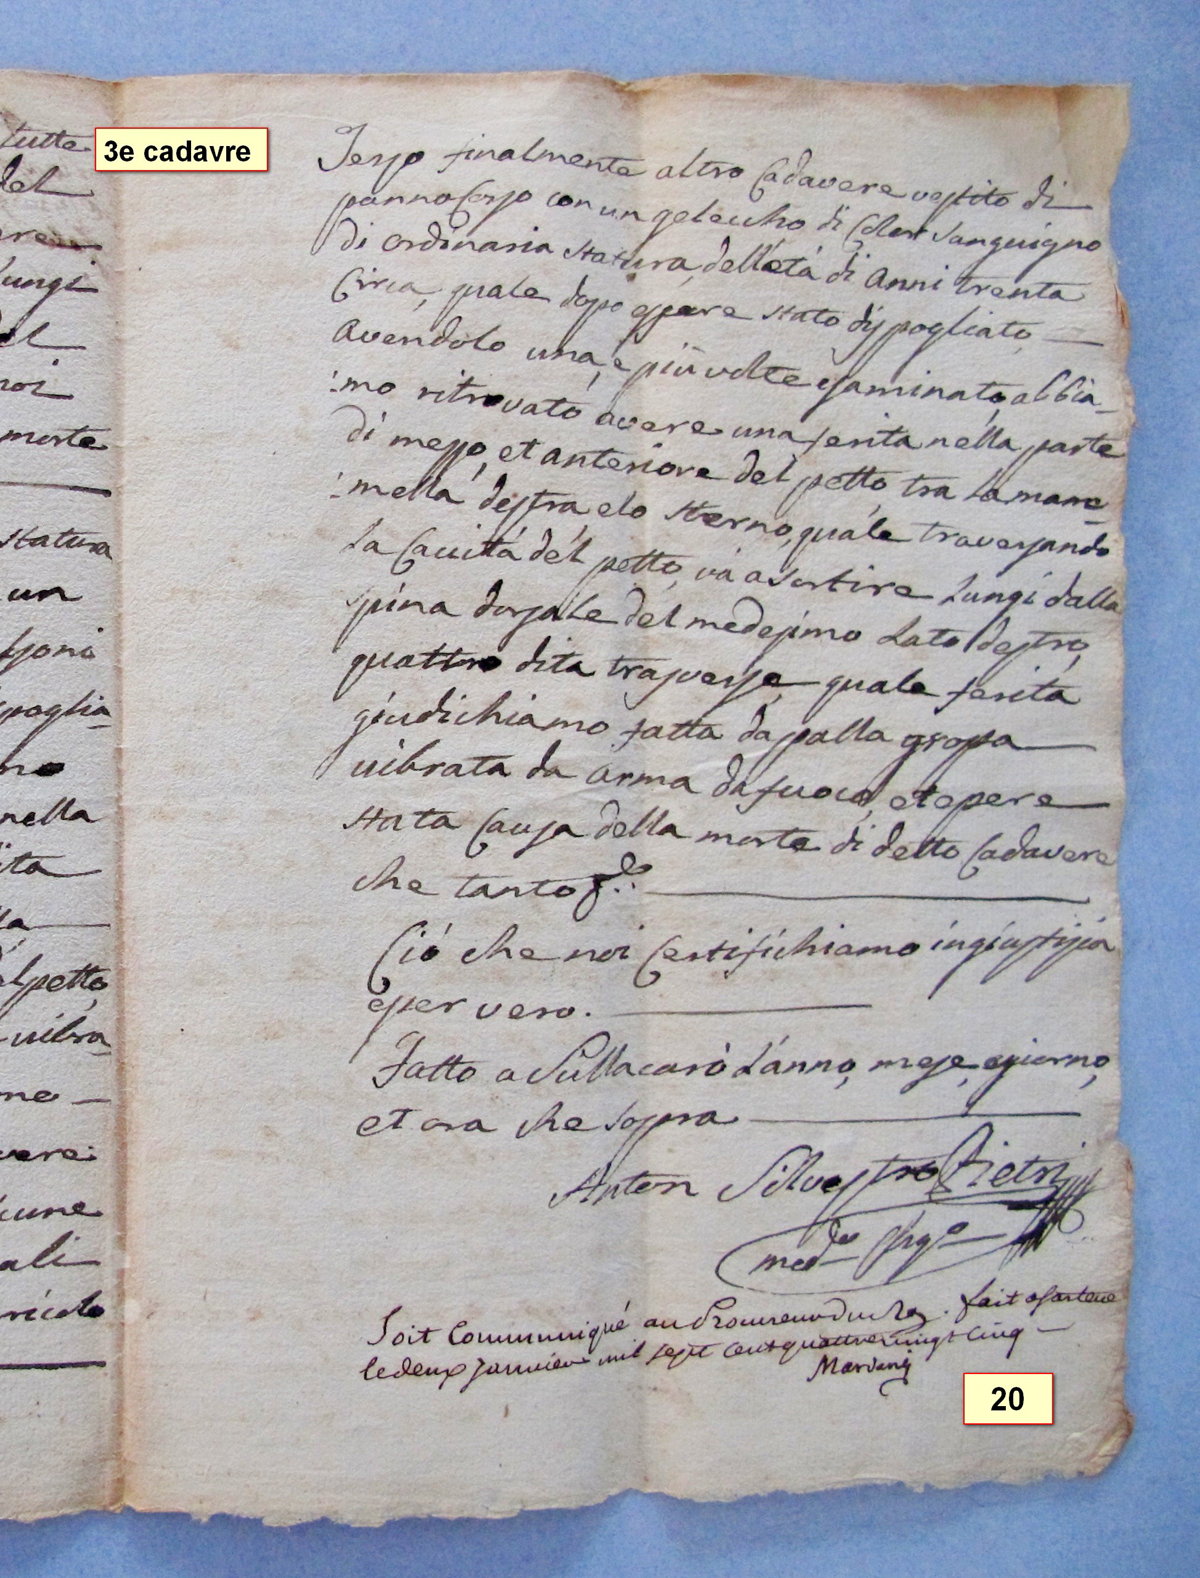 tutte
del
ere
Lungi
el
noi
morte
statura
un
poglia-
no
nella
ita
la
del petto,
vibra-
me
vere:
cune
ali
ricolo
3e cadavre
Terzo finalmente altro Cadavere vestito di
panno Corso con un geleccho di Color Sanguigno
di ordinaria statura, dell'età di Anni trenta
Circa, quale dopo essere stato dispogliato
Avendolo una, e più volte esaminato, abbia-
:mo ritrovato avere una ferita nella parte
di mezzo, et anteriore del petto tra La mam-
:mella destra e lo sterno, quale traversando
La Cavità del petto, và a sortire Lungi dalla
spina dorsale del medesimo Lato destro,
quattro dita trasverse, quale ferita
giudichiamo fatta da palla grossa
vibrata da arma da fuoco, et essere
stata Causa della morte di detto Cadavere
che tanto
Ciò che noi Certifichiamo in giustizia
e per vero.
Fatto a Sullacarò L'anno, mese, e giorno,
et ora che sopra
Anton Silvestro Pietri
Soit Communiqué au Procureur du Roy. fait a Sartene
le deux Janvier mil sept cent quattrevingt cinq
20